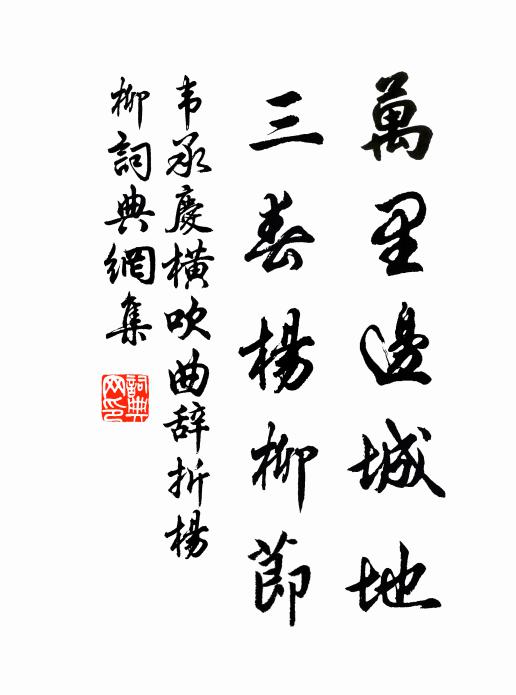 萬里邊城地
三春楊柳節
韦承慶橫吹曲辞折楊
柳詞典網集
詞典网印